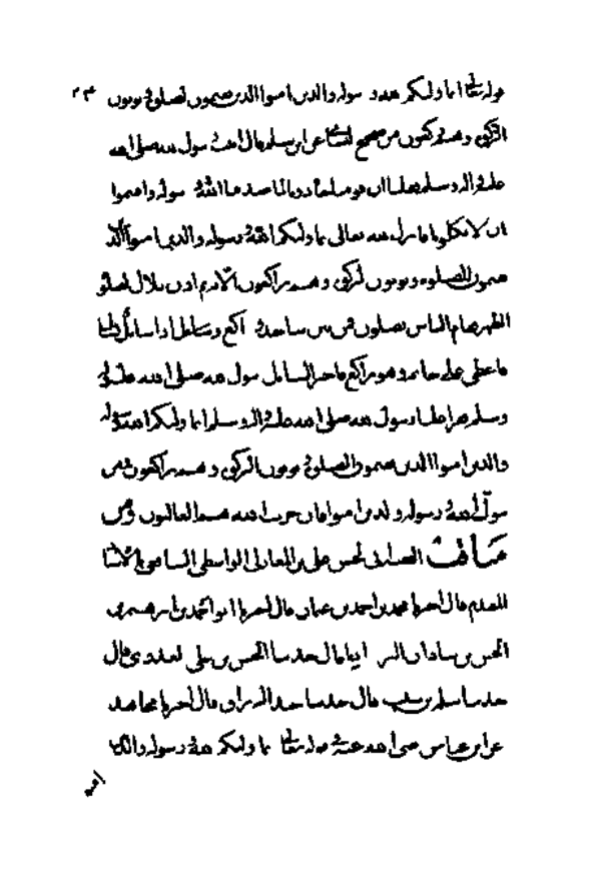 قوله تعالى انما وليكم الله ورسوله والذين امنوا الذين يقيمون الصلوة ويوتون
الزكوة وهم راكعون من صحيح النسائي عن ابن سلام قال اتيت رسول الله صلى الله
عليه واله وسلم فقلنا ان قومنا حادونا لما صدقنا الله ورسوله واقسموا
ان لا يكلمونا فانزل الله تعالى انما وليكم الله ورسوله والذين امنوا الذين
يقيمون الصلوة ويوتون الزكوة وهم راكعون ثم اذن بلال لصلوة
الظهر فقام الناس يصلون فمن بين ساجد وراكع وسائل اذا سائل
فاعطى علي خاتمه وهو راكع فاخبر السائل رسول الله صلى الله عليه واله
وسلم فقرا علينا رسول الله صلى الله عليه واله وسلم انما وليكم الله ورسوله
والذين امنوا الذين يقيمون الصلوة ويوتون الزكوة وهم راكعون ومن
يتول الله ورسوله والذين امنوا فان حزب الله هم الغالبون ومن
مناقب الفقيه ابي الحسن علي بن المغازلي الواسطي الشافعي بالاسناد
المقدم قال اخبرنا محمد بن احمد بن عثمان قال اخبرنا ابو بكر احمد بن ابرهيم بن
الحسن بن شاذان البزاز اذنا قال حدثنا الحسن بن علي العدوي قال
حدثنا سلمة بن شبيب قال حدثنا عبد الرزاق قال اخبرنا مجاهد
عن ابن عباس رضي الله عنه قوله تعالى انما وليكم الله ورسوله والذين
امنوا